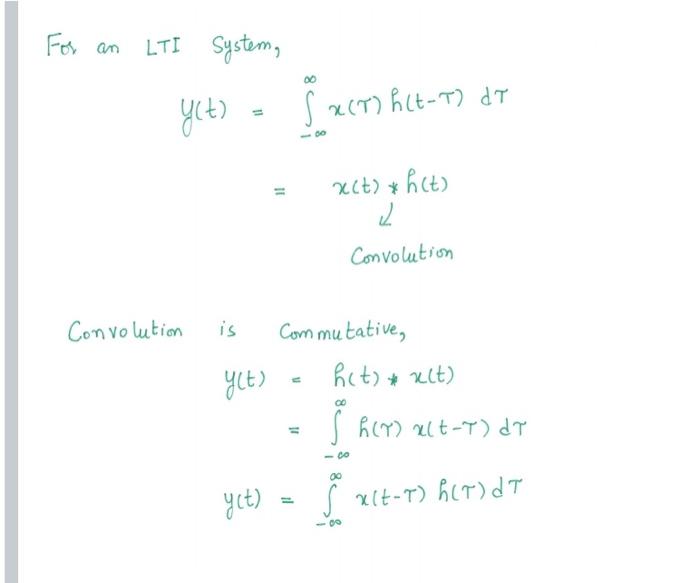 For an LTI System,
y(t) = ∫_{-∞}^{∞} x(τ) h(t-τ) dτ
= x(t) * h(t)
↙
Convolution
Convolution is Commutative,
y(t) = h(t) * x(t)
= ∫_{-∞}^{∞} h(τ) x(t-τ) dτ
y(t) = ∫_{-∞}^{∞} x(t-τ) h(τ) dτ